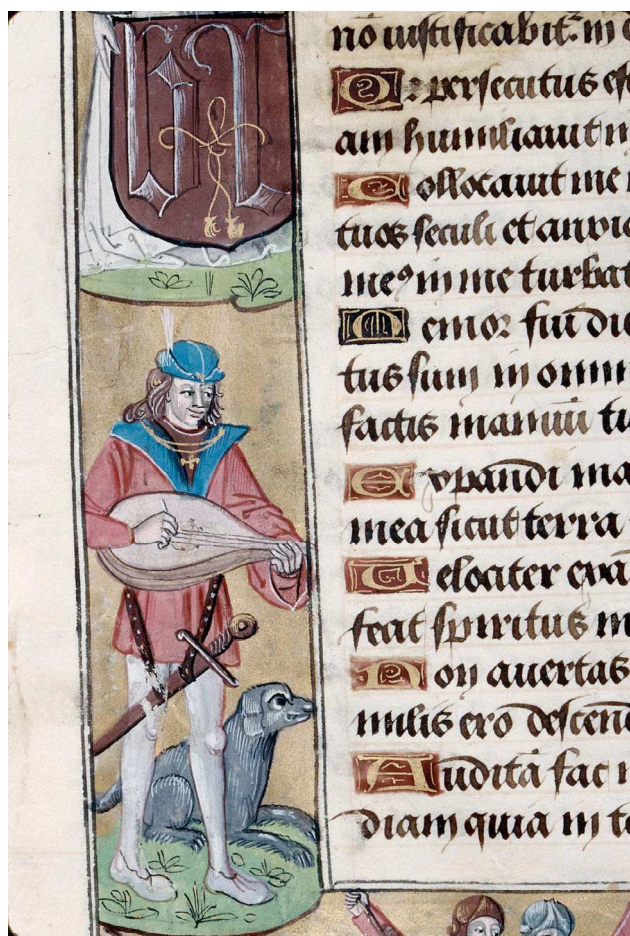 nō iustificabit in
Q: persecutus es
am humiliauit in
Collocauit me
tuos seculi et anxia
meꝰ in me turbat
Memor fui di
tus sum in omni
factis manuū tu
Expandi ma
mea sicut terra
Uelociter exa
feat spiritus m
Non auertas
milis ero descen
Auditā fac
diam quia in te